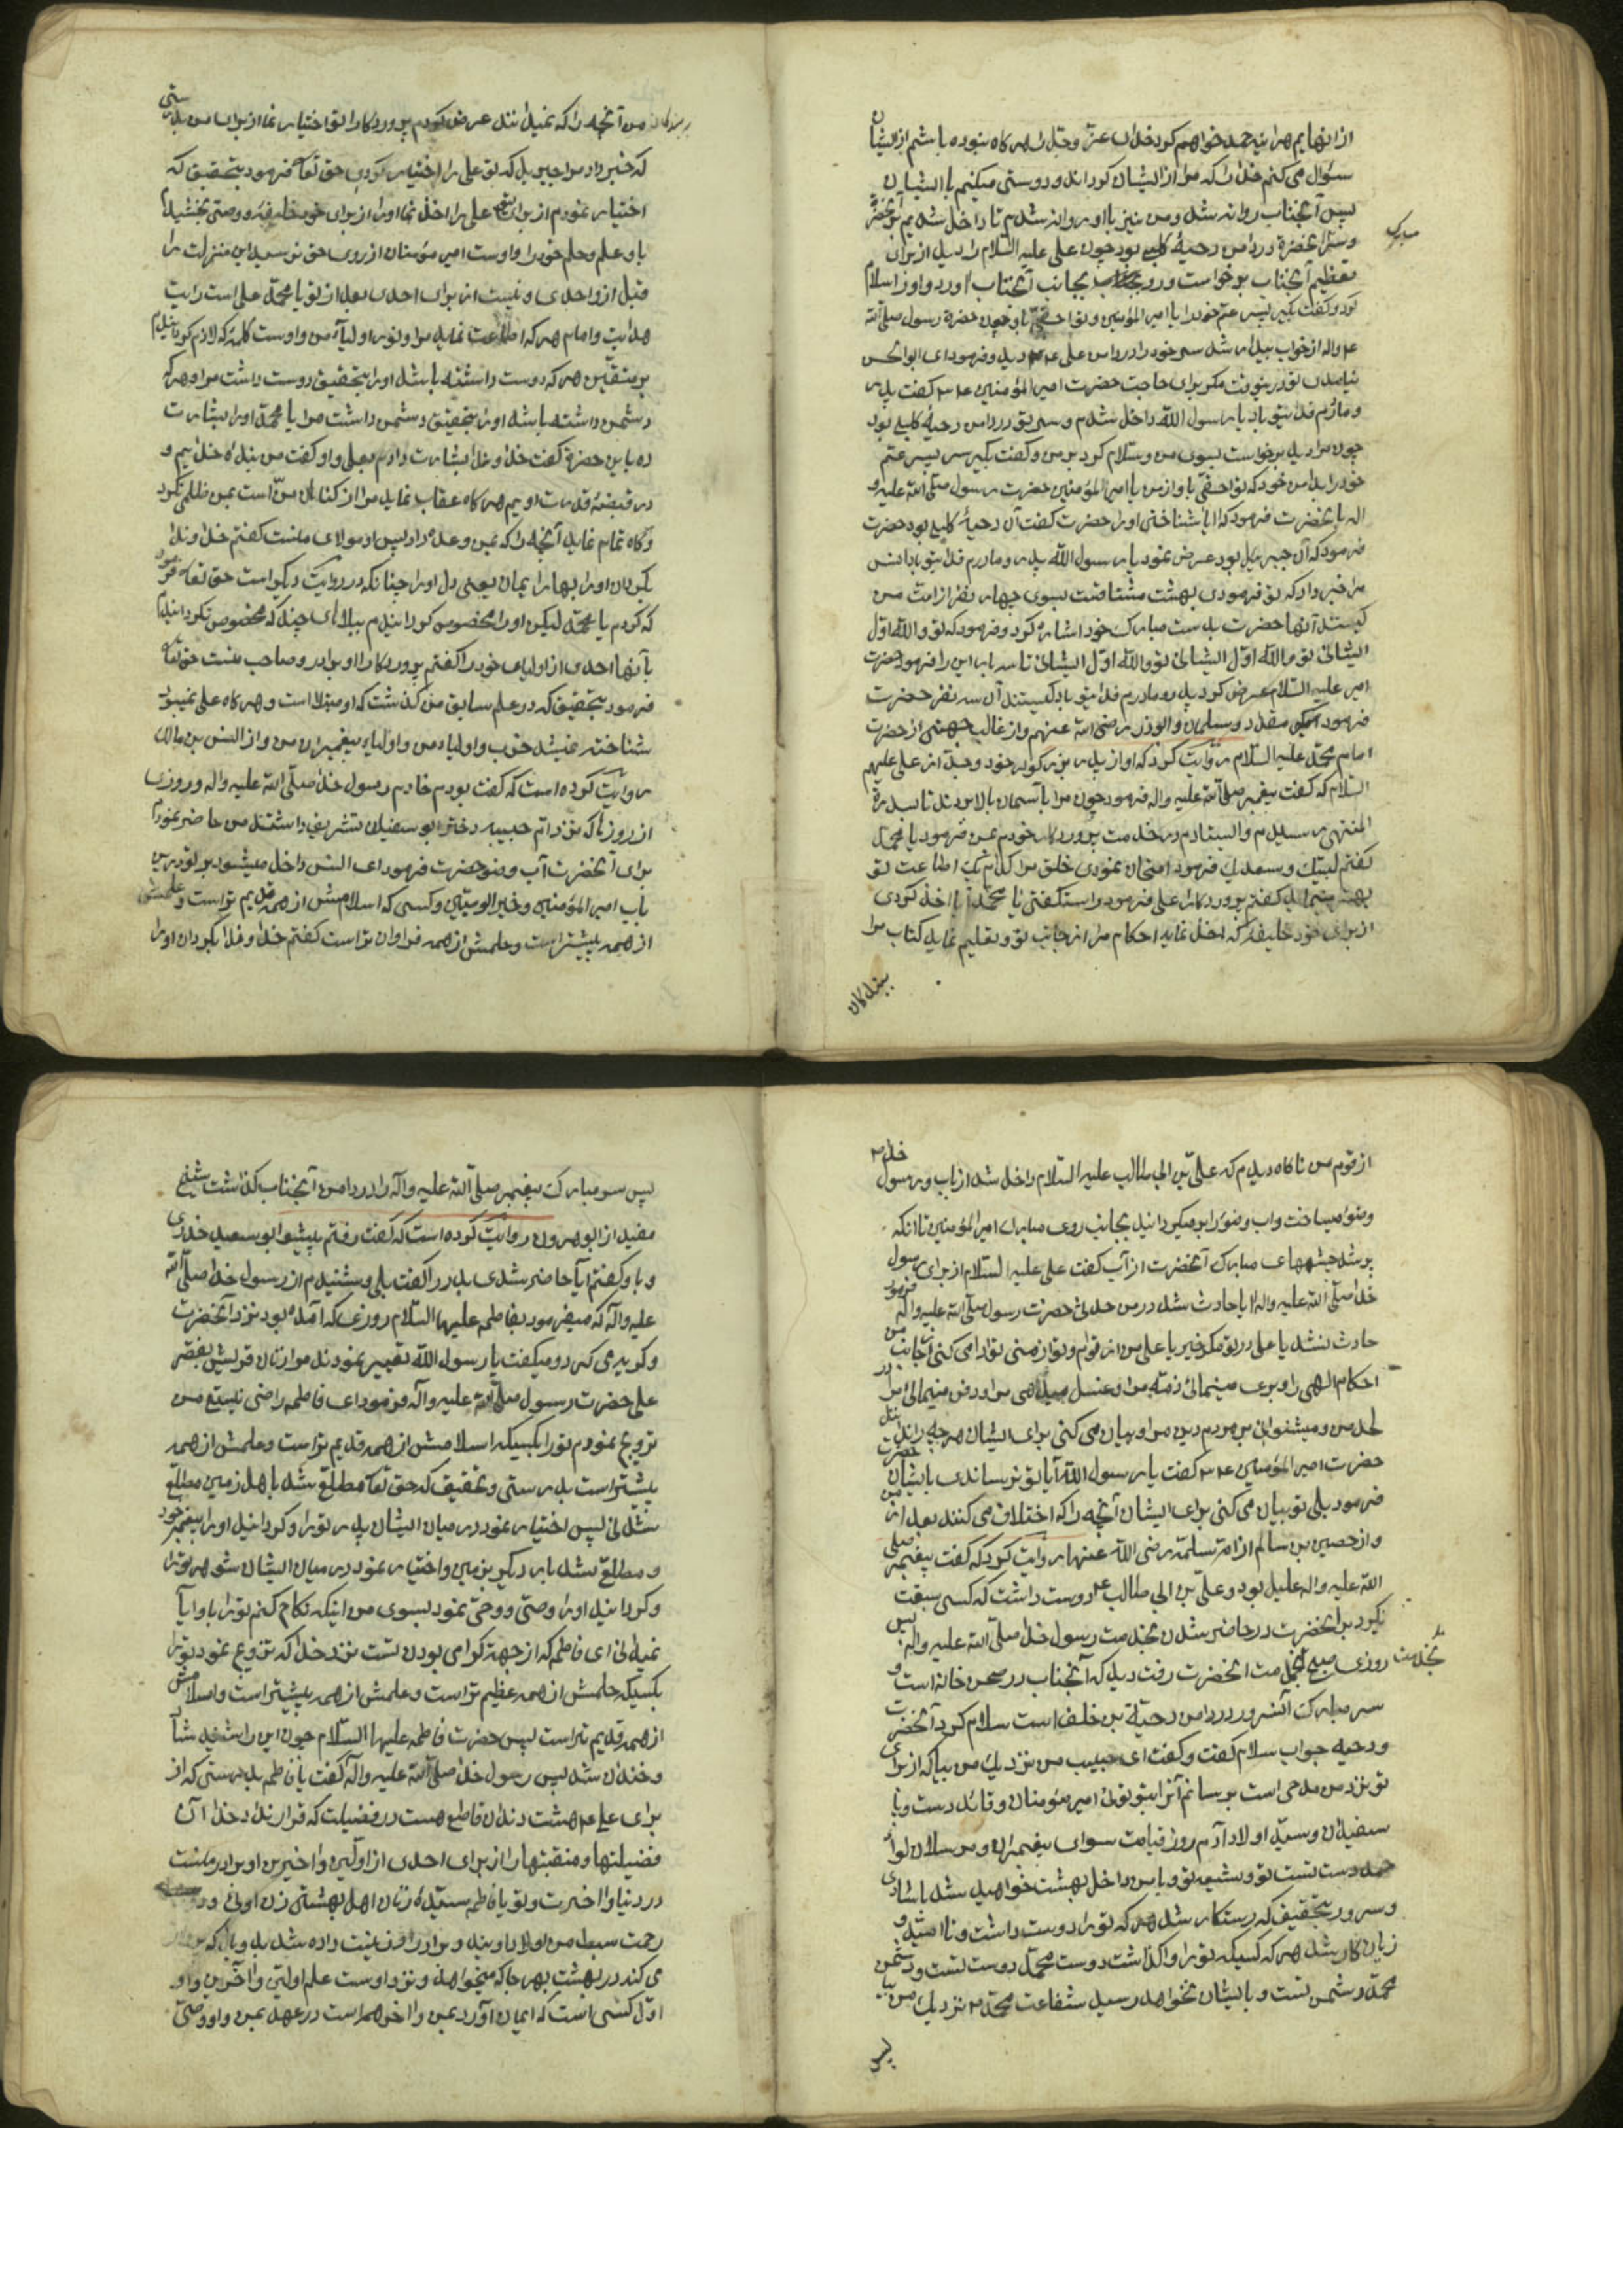 از انهایم هر اینه حمد خواهم کرد خدای عز و جل را هر کاه نبوده باشم از ایشان
سؤال می کنم خدا را که مرا از ایشان کرداند و دوستی میکنم با ایشان
پس آنجناب روانه شد و من نیز با او روانه شدم تا داخل شدیم بر آنحضرة
و سر آنحضرة در دامن دحیهٔ کلبی بود چون علی علیه السلام را دید از برای
مبارک
تعظیم آنجناب برخواست و رو بجانب آنجناب اورد و او را سلام
کرد و کفت بکیر پسر عم خود را یا امیر المؤمنین و تو احقی باو چون حضرة رسول صلی الله
علیه و اله از خواب بیدار شد سر خود را در دامن علی دید و فرمود ای ابوالحسن
نیامدی تو در نزد ما مکر برای حاجت حضرت امیر المؤمنین کفت پدر
و مادرم فدای تو باد یا رسول الله داخل شدم و سر تو در دامن دحیهٔ کلبی بود
چون مرا دید برخواست بسوی من و سلام کرد بر من و کفت بکیر سر پسر عم
خود را بدامن خود که تو احقی باو از من یا امیر المؤمنین حضرت رسول صلی الله علیه و
اله بآنحضرت فرمود که ایا شناختی او را حضرت کفت آن دحیهٔ کلبی بود حضرت
فرمود که آن جبریئل بود عرض نمود یا رسول الله پدر و مادرم فدای تو باد انس
مرا خبر داد که تو فرمودی بهشت مشتاقست بسوی چهار نفر از امت من
کیستند آنها حضرت بدست مبارک خود اشاره کرد و فرمود که تو والله اوّل
ایشانی تو والله اوّل ایشانی تو والله اوّل ایشانی تا سه بار این را فرمود حضرت
امیر علیه السلام عرض کرد پدر و مادرم فدای تو باد کیستند آن سه نفر حضرت
فرمود که مقداد و سلمان و ابوذر رضی الله عنهم و از غالب جهنی از حضرت
امام محمد علیه السلام روایت کرد که او از پدر بزرکوار خود و جد از علی علیهم
السلام که کفت پیغمبر صلی الله علیه و اله فرمود چون مرا بآسمان بالا بردند تا سدرة
المنتهی رسیدم و ایستادم در خدمت پروردکار خودم بمن فرمود یا محمد
کفتم لبیک و سعدیک فرمود امتحان نمودی خلق مرا کدام یک اطاعت تو
بهتر مینماید کفتم پروردکارا علی فرمود راست کفتی یا محمد آیا اخذ کردی
از برای خود خلیفهٔ که اخذ نماید احکام مرا از جانب تو و تعلیم نماید کتاب مرا
ببندکان
ببندکان من آنچه را که نمیدانند عرض کردم پروردکارا تو اختیار نما از برای من بدرستی
که خبر داد مرا جبریل که تو علی را اختیار کردی حق تعا فرمود بتحقیق که
اختیار نمودم از برای تو علی را اخذ نما او را از برای خود خلیفه و وصی بخشیدم
باو علم و حلم خود را و اوست امیر مؤمنان از روی حق نرسید این منزلت را
قبل از او احدی و نیست از برای احدی بعد از تو یا محمد علی است رایت
هدایت و امام هر که اطاعت نماید مرا و نور اولیآء من و اوست کلمهٔ که لازم کردانیدم
بر متقین هر که دوست داشته باشد او را بتحقیق دوست داشت مرا و هر که
دشمن داشته باشد او را بتحقیق دشمن داشت مرا یا محمد او را بشارت
ده باین حضرة کفت خداوندا بشارت دادم بعلی و او کفت من بندهٔ خدایم و
در قبضهٔ قدرت اویم هر کاه عقاب نماید مرا از کناهان من است بمن ظلم نکرده
و کاه تمام نماید آنچه را که بمن وعده داد پس او مولای منست کفتم خداوندا
بکردان او را بهار ایمان یعنی دل او را چنانکه در روایت دیکر است حق تعا فرمود
که کردم یا محمد لیکن او را مخصوص کردانیدم ببلاهای چند که مخصوص نکردانیدم
بآنها احدی از اولیای خود را کفتم پروردکارا او برادر و صاحب منست حق تعا
فرمود بتحقیق که در علم سابق من کذشت که او مبتلا است و هر کاه علی نمیبود
شناخته نمیشد حزب و اولیاء من و اولیاء پیغمبران من و از انس بن مالک
روایت کرده است که کفت بودم خادم رسول خدا صلی الله علیه و اله و روزی
از روزها که نزد ام حبیبه دختر ابو سفیان تشریف داشتند من حاضر نمودم
برای آنحضرت آب وضو حضرت فرمود ای انس داخل میشود بر تو در این
باب امیر المؤمنین و خیر الوصیین و کسی که اسلامش از همه قدیم تر است و علمش
از همه بیشتر است و حلمش از همه فراوان تر است کفتم خداوندا بکردان او را
از قوم من ناکاه دیدم که علی بن ابی طالب علیه السلام داخل شد از باب و رسول خدا
وضو میساخت و آب وضو را بر میکردانید بجانب روی مبارک امیر المؤمنین تا انکه
پر شد چشمهای مبارک آنحضرت از آب کفت علی علیه السلام از برای رسول
خدا صلی الله علیه و اله ایا حادث شد در من حدثی حضرت رسول صلی الله علیه و اله فرمود
حادث نشد یا علی در تو مکر خیر یا علی من از توام و تو از منی تو ادا می کنی از جانب من
احکام الهی را و بری مینمائی ذمهٔ مرا و غسل میدهی مرا و دفن مینمائی مرا در
لحد من و میشنوانی بر مردم دین مرا و بیان می کنی برای ایشان هر چه را ندانند
حضرت امیر المؤمنین کفت یا رسول الله آیا تو نرساندی بایشان حضرت
فرمود بلی تو بیان می کنی برای ایشان آنچه را که اختلاف می کنند بعد از من
و از حصین بن سالم از ام سلمه رضی الله عنها روایت کرد که کفت پیغمبر صلی
الله علیه و اله علیل بود و علی بن ابی طالب دوست داشت که کسی سبقت
نکیرد بر آنحضرت در حاضر شدن بخدمت رسول خدا صلی الله علیه و اله پس
بخدمت روزی صبح بخدمت آنحضرت رفت دید که آنجناب در صحن خانه است و
سر مبارک آنسرور در دامن دحیة بن خلیفه است سلام کرد آنحضرت
و دحیه جواب سلام کفت و کفت ای حبیب من نزدیک من بیا که از برای
تو نزد من مدحی است برسانم آنرا بتو توئی امیر مؤمنان و قائد دست و پا
سفیدان و سید اولاد آدم روز قیامت سوای پیغمبران و مرسلان لوآء
حمد دست تست تو و شیعه تو با من داخل بهشت خواهید شد با شادی
و سرور بتحقیق که رستکار شد هر که تو را دوست داشت و نا امید و
زیان کار شد هر که کسیکه تو را واکذاشت دوست محمد دوست تست و دشمن
محمد دشمن تست و بایشان نخواهد رسید شفاعت محمد نزدیک من بیا
پس
پس سر مبارک پیغمبر صلی الله علیه و آله را در دامن آنجناب کذاشت شیخ
مفید از ابو هرون روایت کرده است که کفت رفتم پیش ابو سعید خدری
و باو کفتم آیا حاضر شدی بدر را کفت بلی و شنیدم از رسول خدا صلی الله
علیه و آله که میفرمود بفاطمه علیها السلام روزی که آمده بود نزد آنحضرت
و کریه می کرد و میکفت یا رسول الله تعییر نمودند مرا زنان قریش بفقر
علی حضرت رسول صلی الله علیه و آله فرمود ای فاطمه راضی نیستی من
تزویج نمودم تو را بکسیکه اسلامش از همه قدیم تر است و علمش از همه
بیشتر است بدرستی و تحقیق که حق تعا مطلع شد باهل زمین مطلع
شدنی پس اختیار نمود در میان ایشان پدر تو را و کردانید او را پیغمبر خود
و مطلع شد بار دیکر بزمین و اختیار نمود در میان ایشان شوهر تو را
و کردانید او را وصی و وحی نمود بسوی من اینکه نکاح کنم تو را باو آیا
نمیدانی ای فاطمه که از جهة کرامی بودن تست نزد خدا که تزویج نمود تو را
بکسیکه حلمش از همه عظیم تر است و علمش از همه بیشتر است و اسلامش
از همه قدیم تر است پس حضرت فاطمه علیها السلام چون این را شنید شاد
و خندان شد پس رسول خدا صلی الله علیه و آله کفت یا فاطمه بدرستی که از
برای علی هشت دندان قاطع هست در فضیلت که قرار نداد خدا آن
فضیلتها و منقبتها را از برای احدی از اولین و اخرین او برادر منست
در دنیا و اخرت و تو یا فاطمه سیدهٔ زنان اهل بهشتی زن اوئی و دو
رحمت سبط من اولاد اویند و برادر او زینت داده شد بدو بال که پرواز
می کند در بهشت بهر جا که میخواهد و نزد اوست علم اولین و اخرین و او
اوّل کسی است که ایمان آورد بمن و اخر همه است در عهد بمن و او وصی